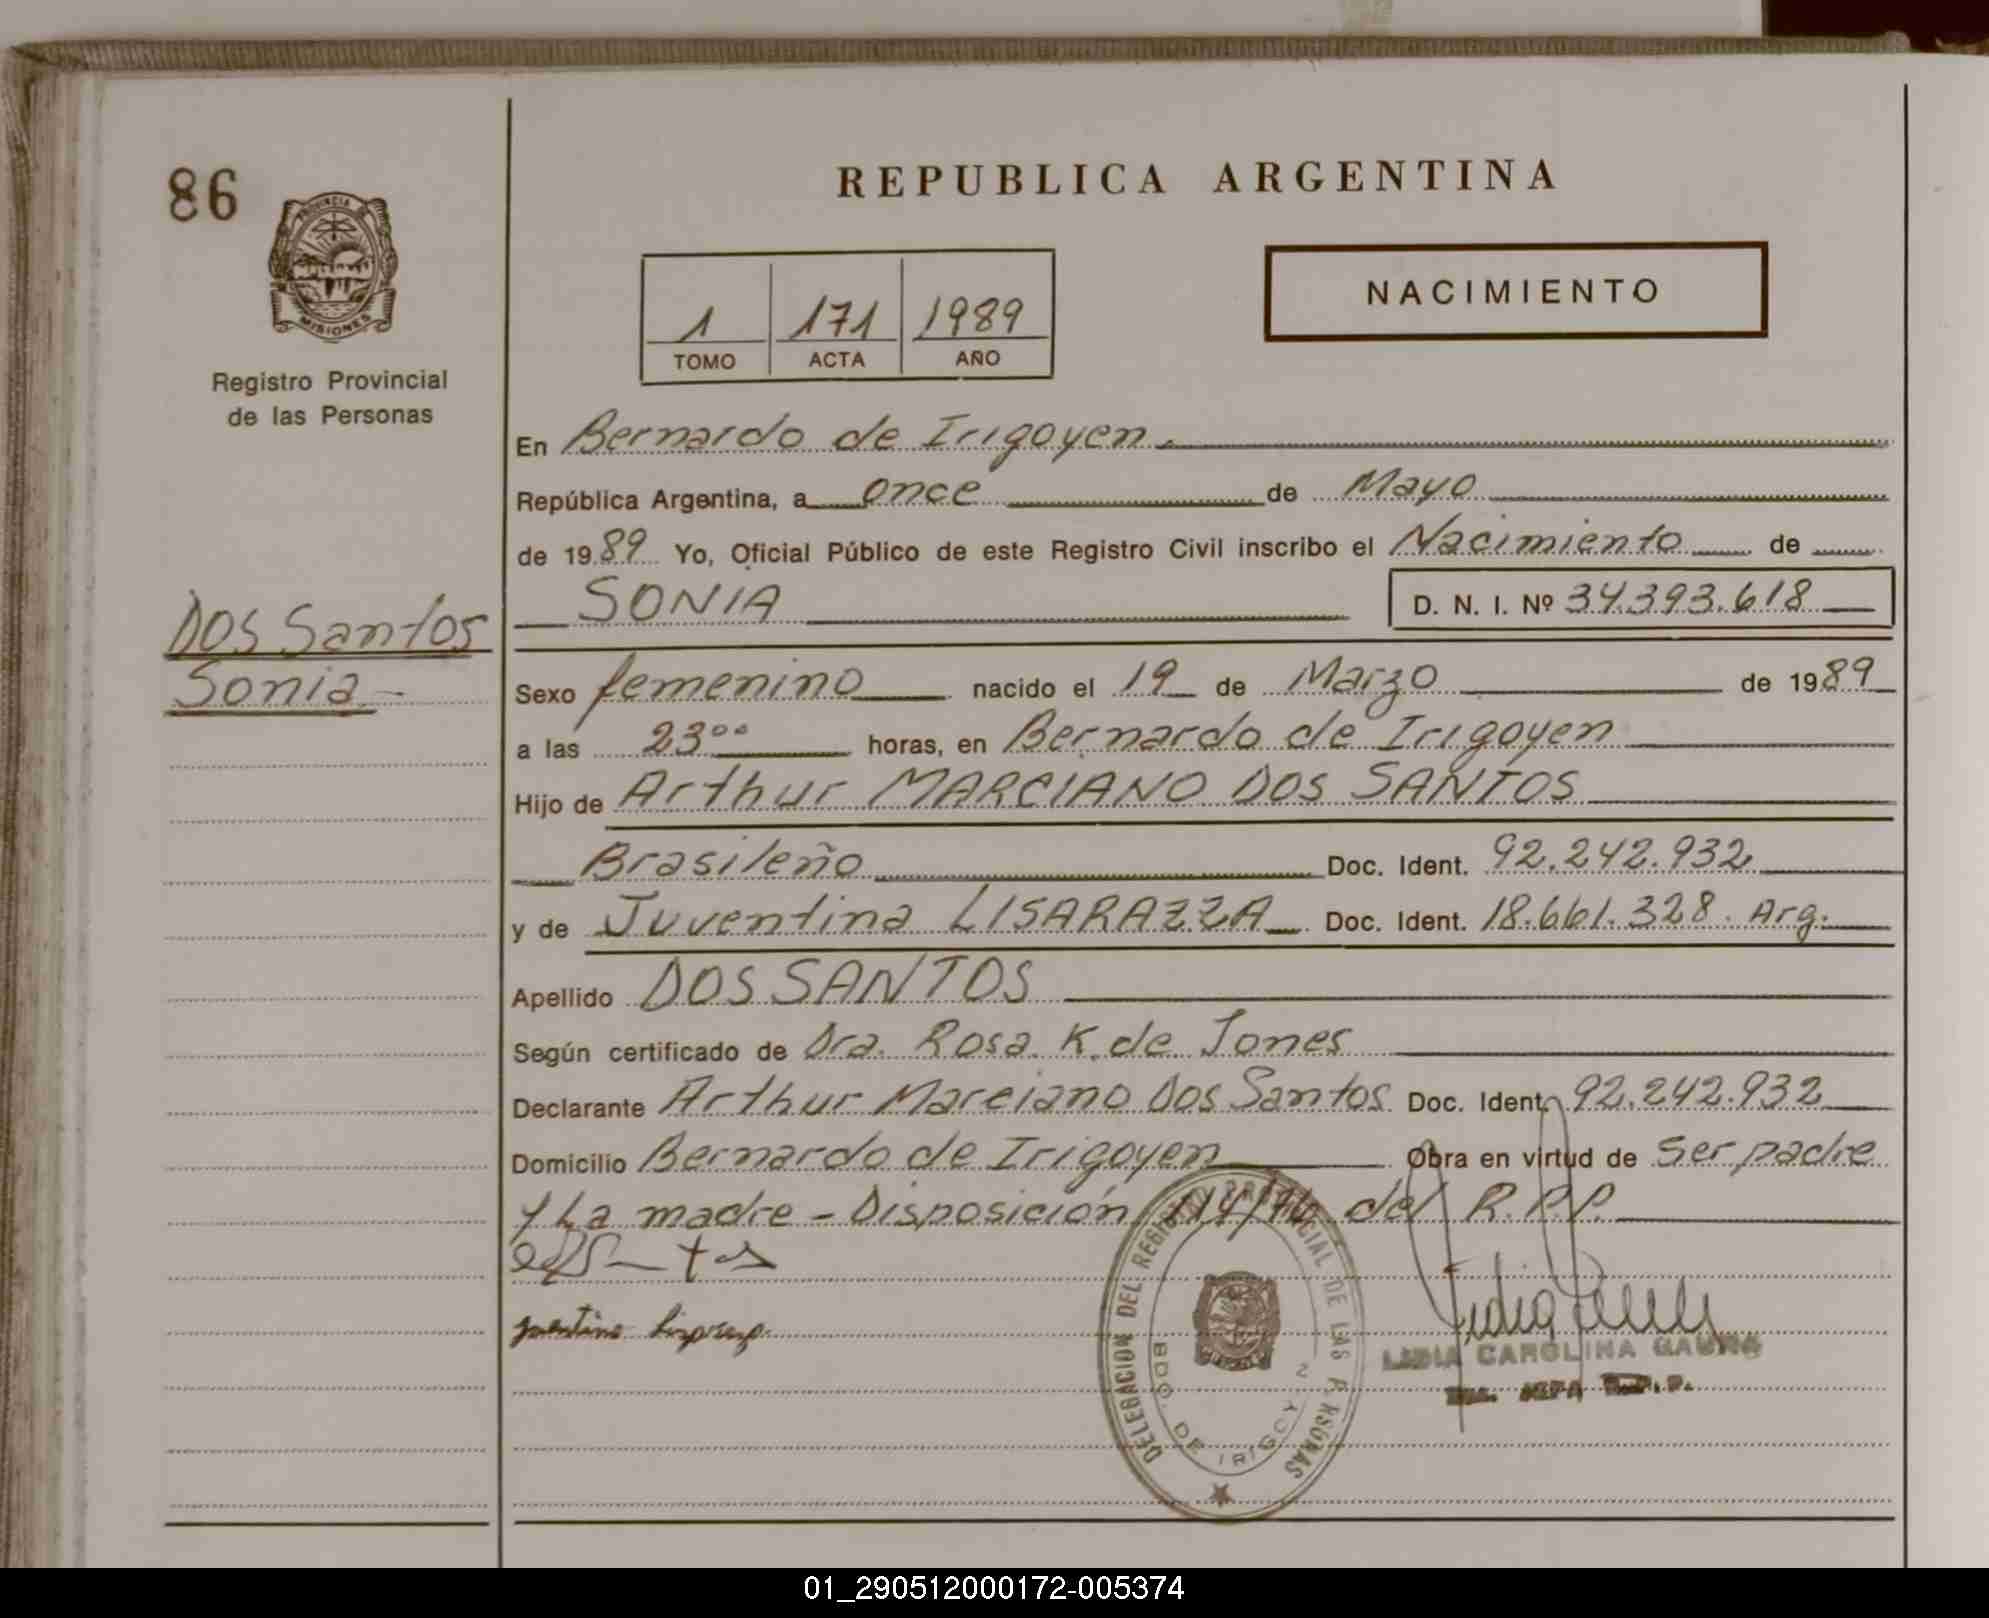 86
PROVINCIA DE
MISIONES
Registro Provincial
de las Personas
DOS Santos
Sonia
REPUBLICA ARGENTINA
1 171 1989
TOMO ACTA AÑO
NACIMIENTO
En Bernardo de Irigoyen.
República Argentina, a once de Mayo
de 1989 Yo, Oficial Público de este Registro Civil inscribo el Nacimiento de
SONIA D. N. I. Nº 34.393.618
Sexo femenino nacido el 19 de Marzo de 1989
a las 23°° horas, en Bernardo de Irigoyen
Hijo de Arthur MARCIANO DOS SANTOS
Brasileño Doc. Ident. 92.242.932
y de Juventina LISARAZZA Doc. Ident. 18.661.328. Arg.
Apellido DOS SANTOS
Según certificado de Dra. Rosa K. de Jones
Declarante Arthur Marciano Dos Santos Doc. Ident. 92.242.932
Domicilio Bernardo de Irigoyen Obra en virtud de ser padre
y La madre - Disposición del R.P.P.
DELEGACION DEL REGISTRO PROVINCIAL DE LAS PERSONAS
BDO. DE IRIGOYEN
LIDIA CAROLINA
JEFA R.P.P.
01_290512000172-005374